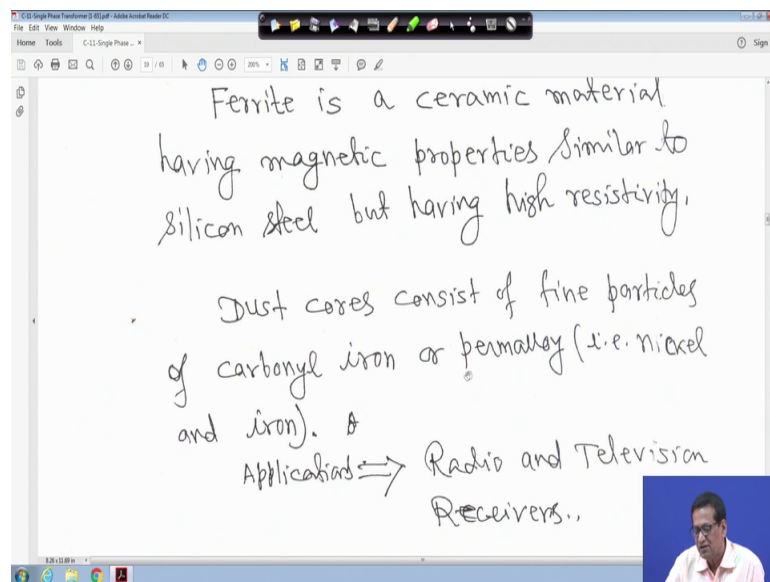 C-11-Single Phase Transformer [1-65].pdf - Adobe Acrobat Reader DC
File Edit View Window Help
Home Tools C-11-Single Phase ... ×
Sign
19 / 65
200%
Ferrite is a ceramic material
having magnetic properties similar to
silicon steel but having high resistivity.
Dust cores consist of fine particles
of carbonyl iron or permalloy (i.e. nickel
and iron).
Applications ⇒ Radio and Television
Receivers..
8.26 x 11.69 in